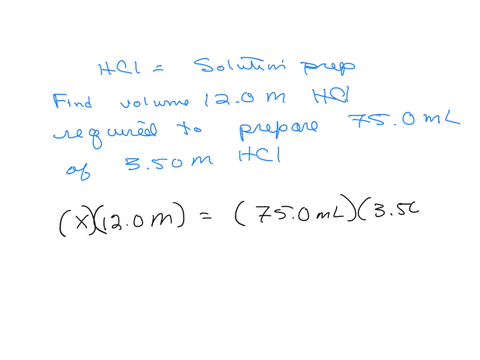 HCl = Solution prep
Find volume 12.0 M HCl
required to prepare 75.0 mL
of 3.50 M HCl
(x)(12.0 M) = (75.0 mL)(3.50